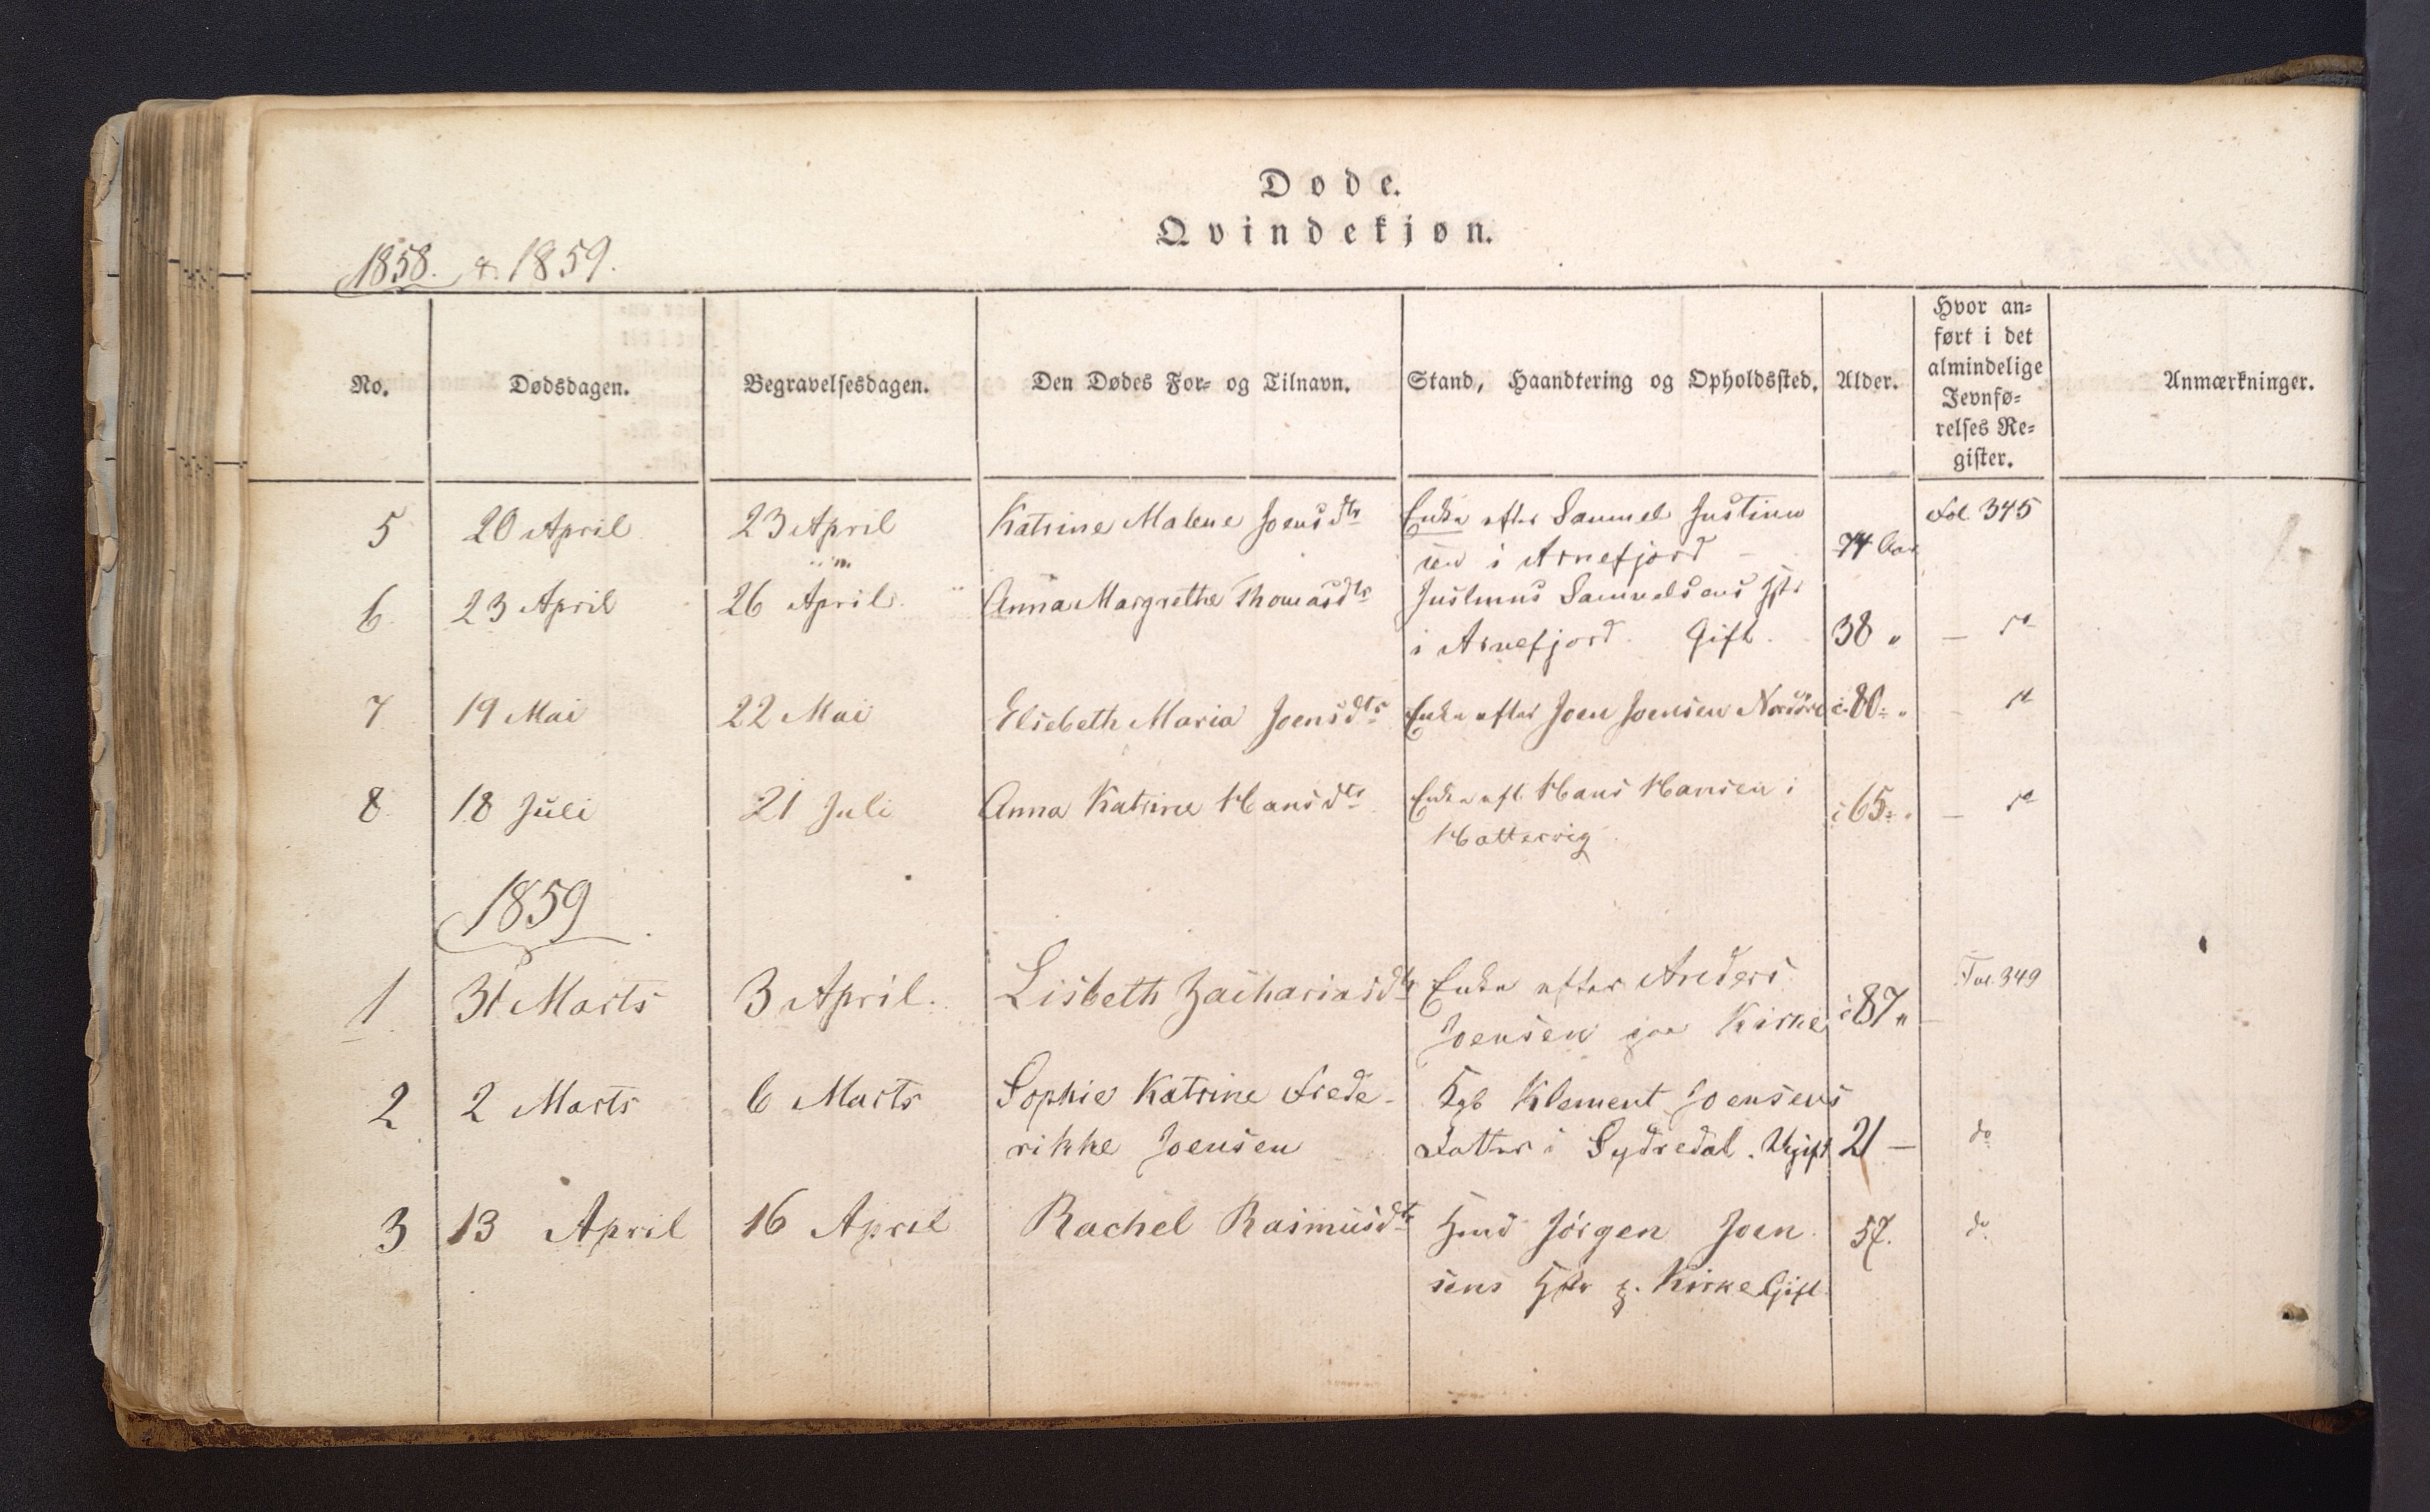 Døde.
Qvindekjøn.
1858. & 1859.
No. Dødsdagen. Begravelsesdagen. Den Dødes For- og Tilnavn. Stand, Haandtering og Opholdssted. Alder. Hvor an-
ført i det
almindelige
Jevnfø-
relses Re-
gister. Anmærkninger.
5 20 April 23 April Katrine Malene Joensdtr Enke efter Samuel Justinu
sen i Arnefjord - 74 Aar Fol. 345
6 23 April 26 April Anna Margrethe Thomasdtr Justinus Samuelsens Hstr
i Arnefjord. Gift. 38 " - do
7 19 Mai 22 Mai Elsebeth Maria Joensdtr Enke efter Joen Joensen Nordöre i 80 - do
8 18 Juli 21 Juli Anna Katrine Hansdtr Enke eft. Hans Hansen i
Hattervig i 65 - do
1859
1 31 Marts 3 April. Lisbeth Zachariasdtr Enke efter Anders
Joensen paa Kirke i 87 " Fol. 349
2 2 Marts 6 Marts Sophie Katrine Frede-
rikke Joensen Kgb Klement Joensens
Datter i Sydredal. Ugift 21 - do
3 13 April 16 April Rachel Rasmusdtr Hmd Jörgen Joen
sens Hstr p. Kirke Gift. 57. do